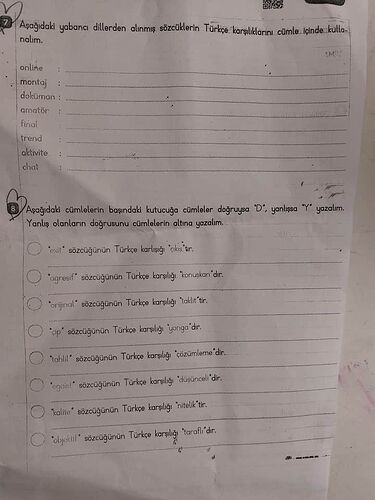 7 Aşağıdaki yabancı dillerden alınmış sözcüklerin Türkçe karşılıklarını cümle içinde kulla-
nalım.
online :
montaj :
doküman :
amatör :
final :
trend :
aktivite :
chat :
8 Aşağıdaki cümlelerin başındaki kutucuğa cümleler doğruysa "D", yanlışsa "Y" yazalım.
Yanlış olanların doğrusunu cümlelerin altına yazalım.
"exit" sözcüğünün Türkçe karşılığı "çıkış"tır.
"agresif" sözcüğünün Türkçe karşılığı "konuşkan"dır.
"orijinal" sözcüğünün Türkçe karşılığı "taklit"tir.
"çip" sözcüğünün Türkçe karşılığı "yonga"dır.
"tahlil" sözcüğünün Türkçe karşılığı "çözümleme"dir.
"egoist" sözcüğünün Türkçe karşılığı "düşünceli"dir.
"kalite" sözcüğünün Türkçe karşılığı "nitelik"tir.
"objektif" sözcüğünün Türkçe karşılığı "taraflı"dır.